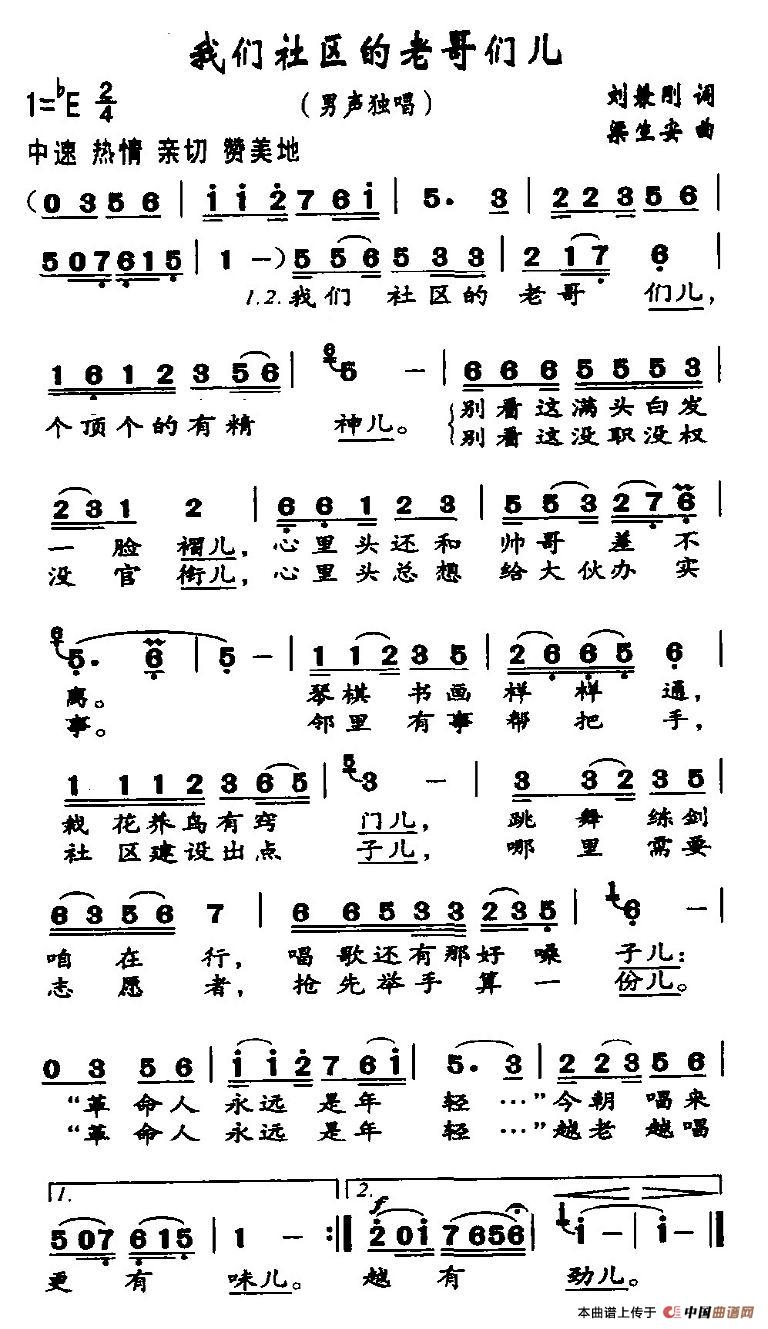 我们社区的老哥们儿
1=♭E 2/4
（男声独唱）
刘兼刚 词
梁生安 曲
中速 热情 亲切 赞美地
(0 3 5 6 | i i 2 7 6 i | 5. 3 | 2 2 2 3 5 6
5 0 7 6 1 5 | 1 - ) 5 5 6 5 3 3 | 2 1 7 6 |
1.2.我们 社区的 老哥 们儿，
1 6 1 2 3 5 6 | 6 5 - | 6 6 6 5 5 5 3
个顶个的有精 神儿。 别看这满头白发
别看这没职没权
2 3 1 2 | 6 6 1 2 3 | 5 5 3 2 7 6
一脸褶儿，心里头还和 帅哥 差不
没官衔儿，心里头总想 给大伙办实
6 5. 6 | 5 - | 1 1 2 3 5 | 2 6 6 5 6 |
离。 琴棋 书画 样样 通，
事。 邻里 有事 帮把 手，
1 1 1 2 3 6 5 | 5 3 - | 3 3 2 3 5
栽花养鸟有窍 门儿， 跳舞练剑
社区建设出点 子儿， 哪里需要
6 3 5 6 7 | 6 6 5 3 3 2 3 5 | 1 6 - |
咱在行， 唱歌还有那好嗓 子儿：
志愿者， 抢先举手算一 份儿。
0 3 5 6 | i i 2 7 6 i | 5. 3 | 2 2 3 5 6 |
“革命人 永远 是年 轻…”今朝 唱来
“革命人 永远 是年 轻…”越老 越唱
1. 2. f
5 0 7 6 1 5 | 1 - :‖ 2 0 i 7 6 5 6 | i i - | i - ‖
更有 味儿。 越有 劲儿。
本曲谱上传于 中国曲谱网